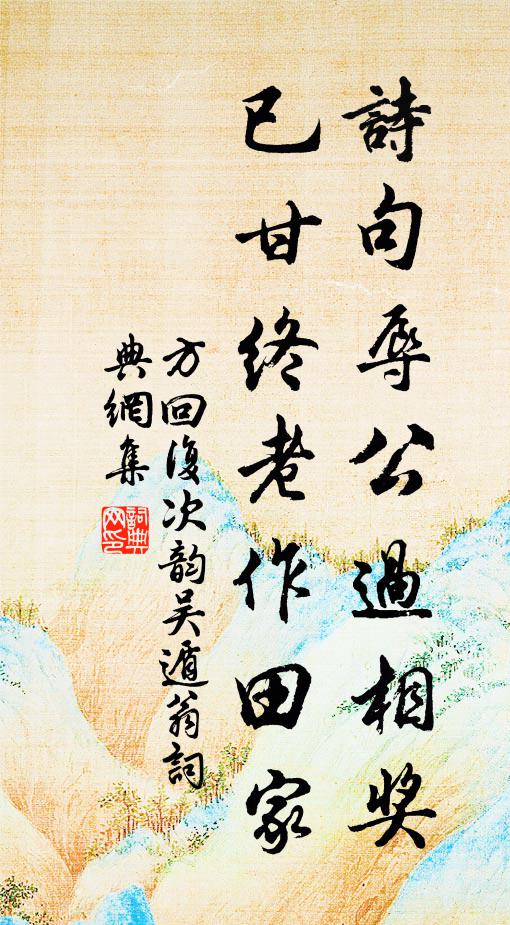 詩句辱公過相奨
已甘終老作田家
方回復次韵吴遁翁詞
典網集
詞典
网印